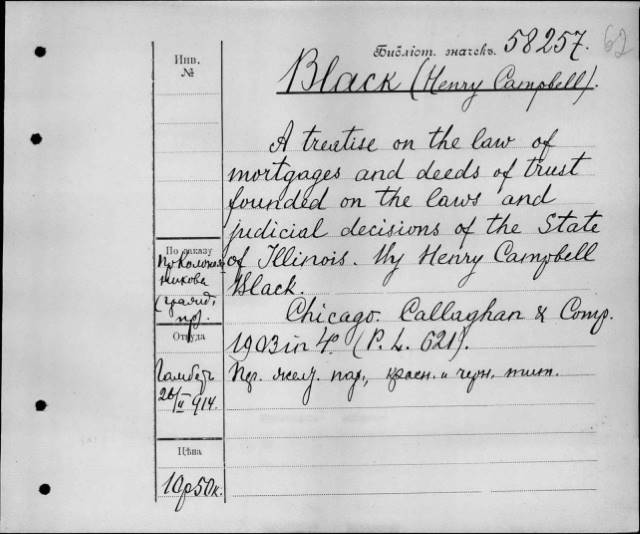 62
Библіот. значекъ 58257.
Инв.
№
Black (Henry Campbell).
A treatise on the law of
mortgages and deeds of trust
founded on the laws and
judicial decisions of the State
of Illinois. By Henry Campbell
Black.
Chicago. Callaghan & Comp.
1903 in 4º. (P. L. 621).
Пер. желт. пап., красн. и черн. тит.
По заказу
пр.
Откуда
26/II 914.
Цѣна
10р50к.